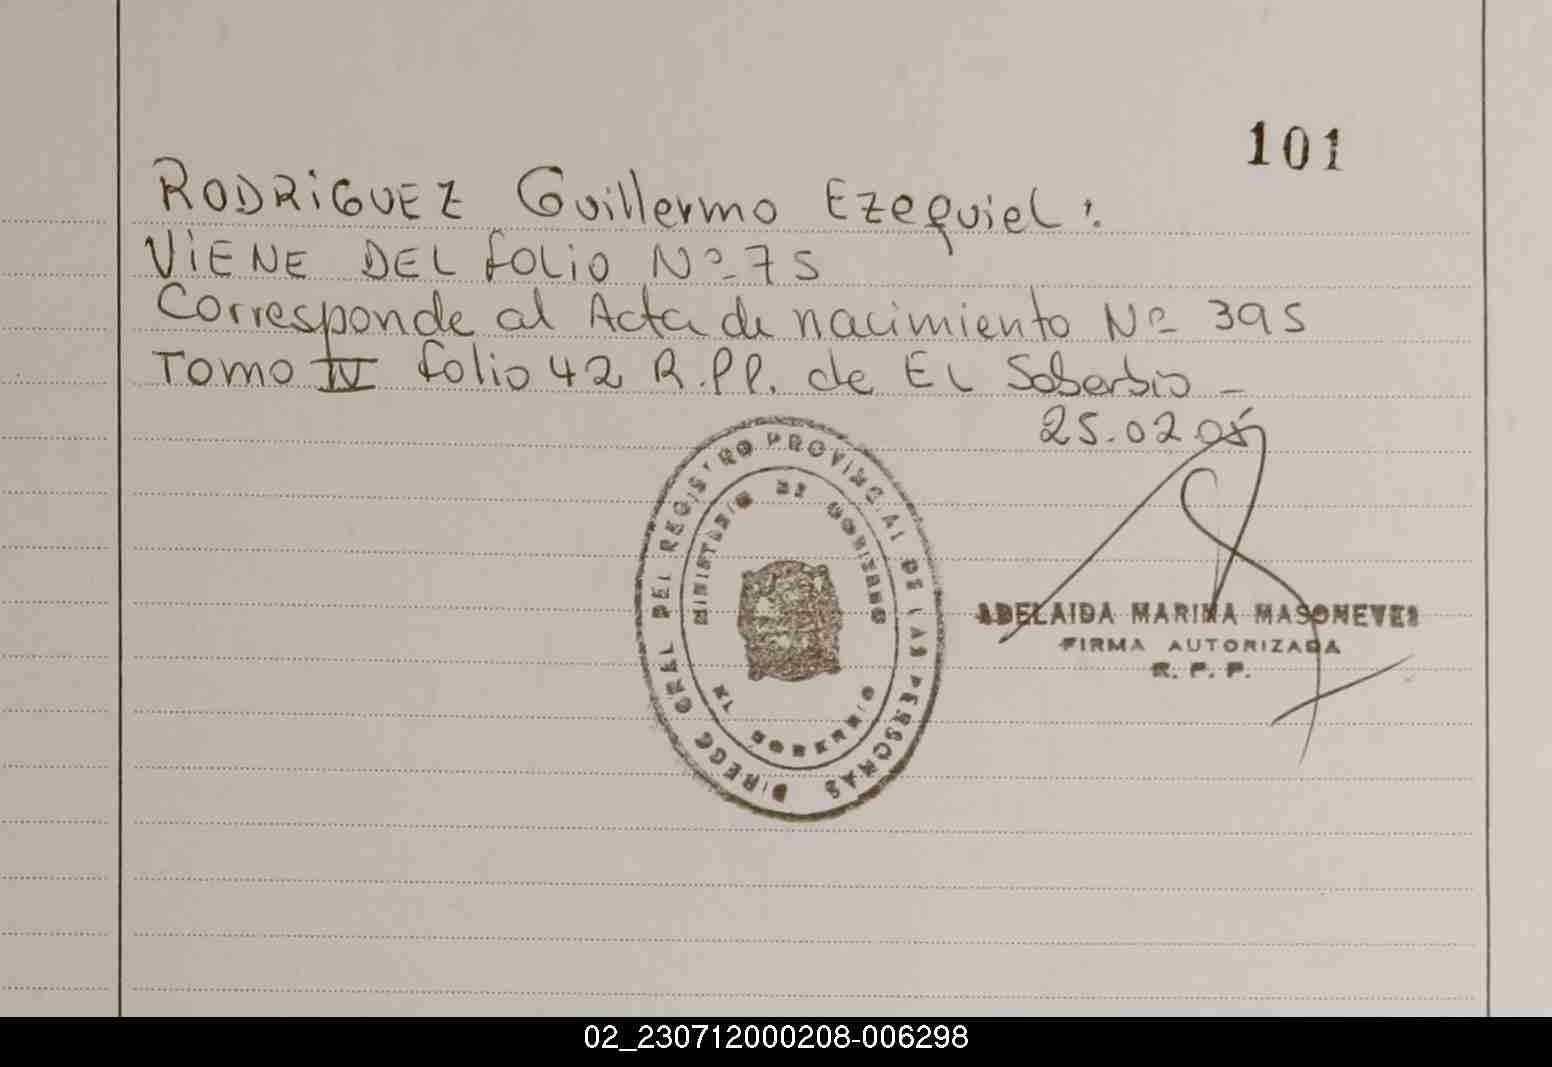 101
RODRiGUEZ Guillermo Ezequiel :
ViENE DEL folio Nº 75
Corresponde al Acta de nacimiento Nº 395
Tomo IV folio 42 R.PP. de EL Soberbio -
25.02.05
DIRECC GRAL DEL REGISTRO PROVINCIAL DE LAS PERSONAS
MINISTERIO DE GOBIERNO
ADELAIDA MARINA
FIRMA AUTORIZADA
R. P. P.
02_230712000208-006298